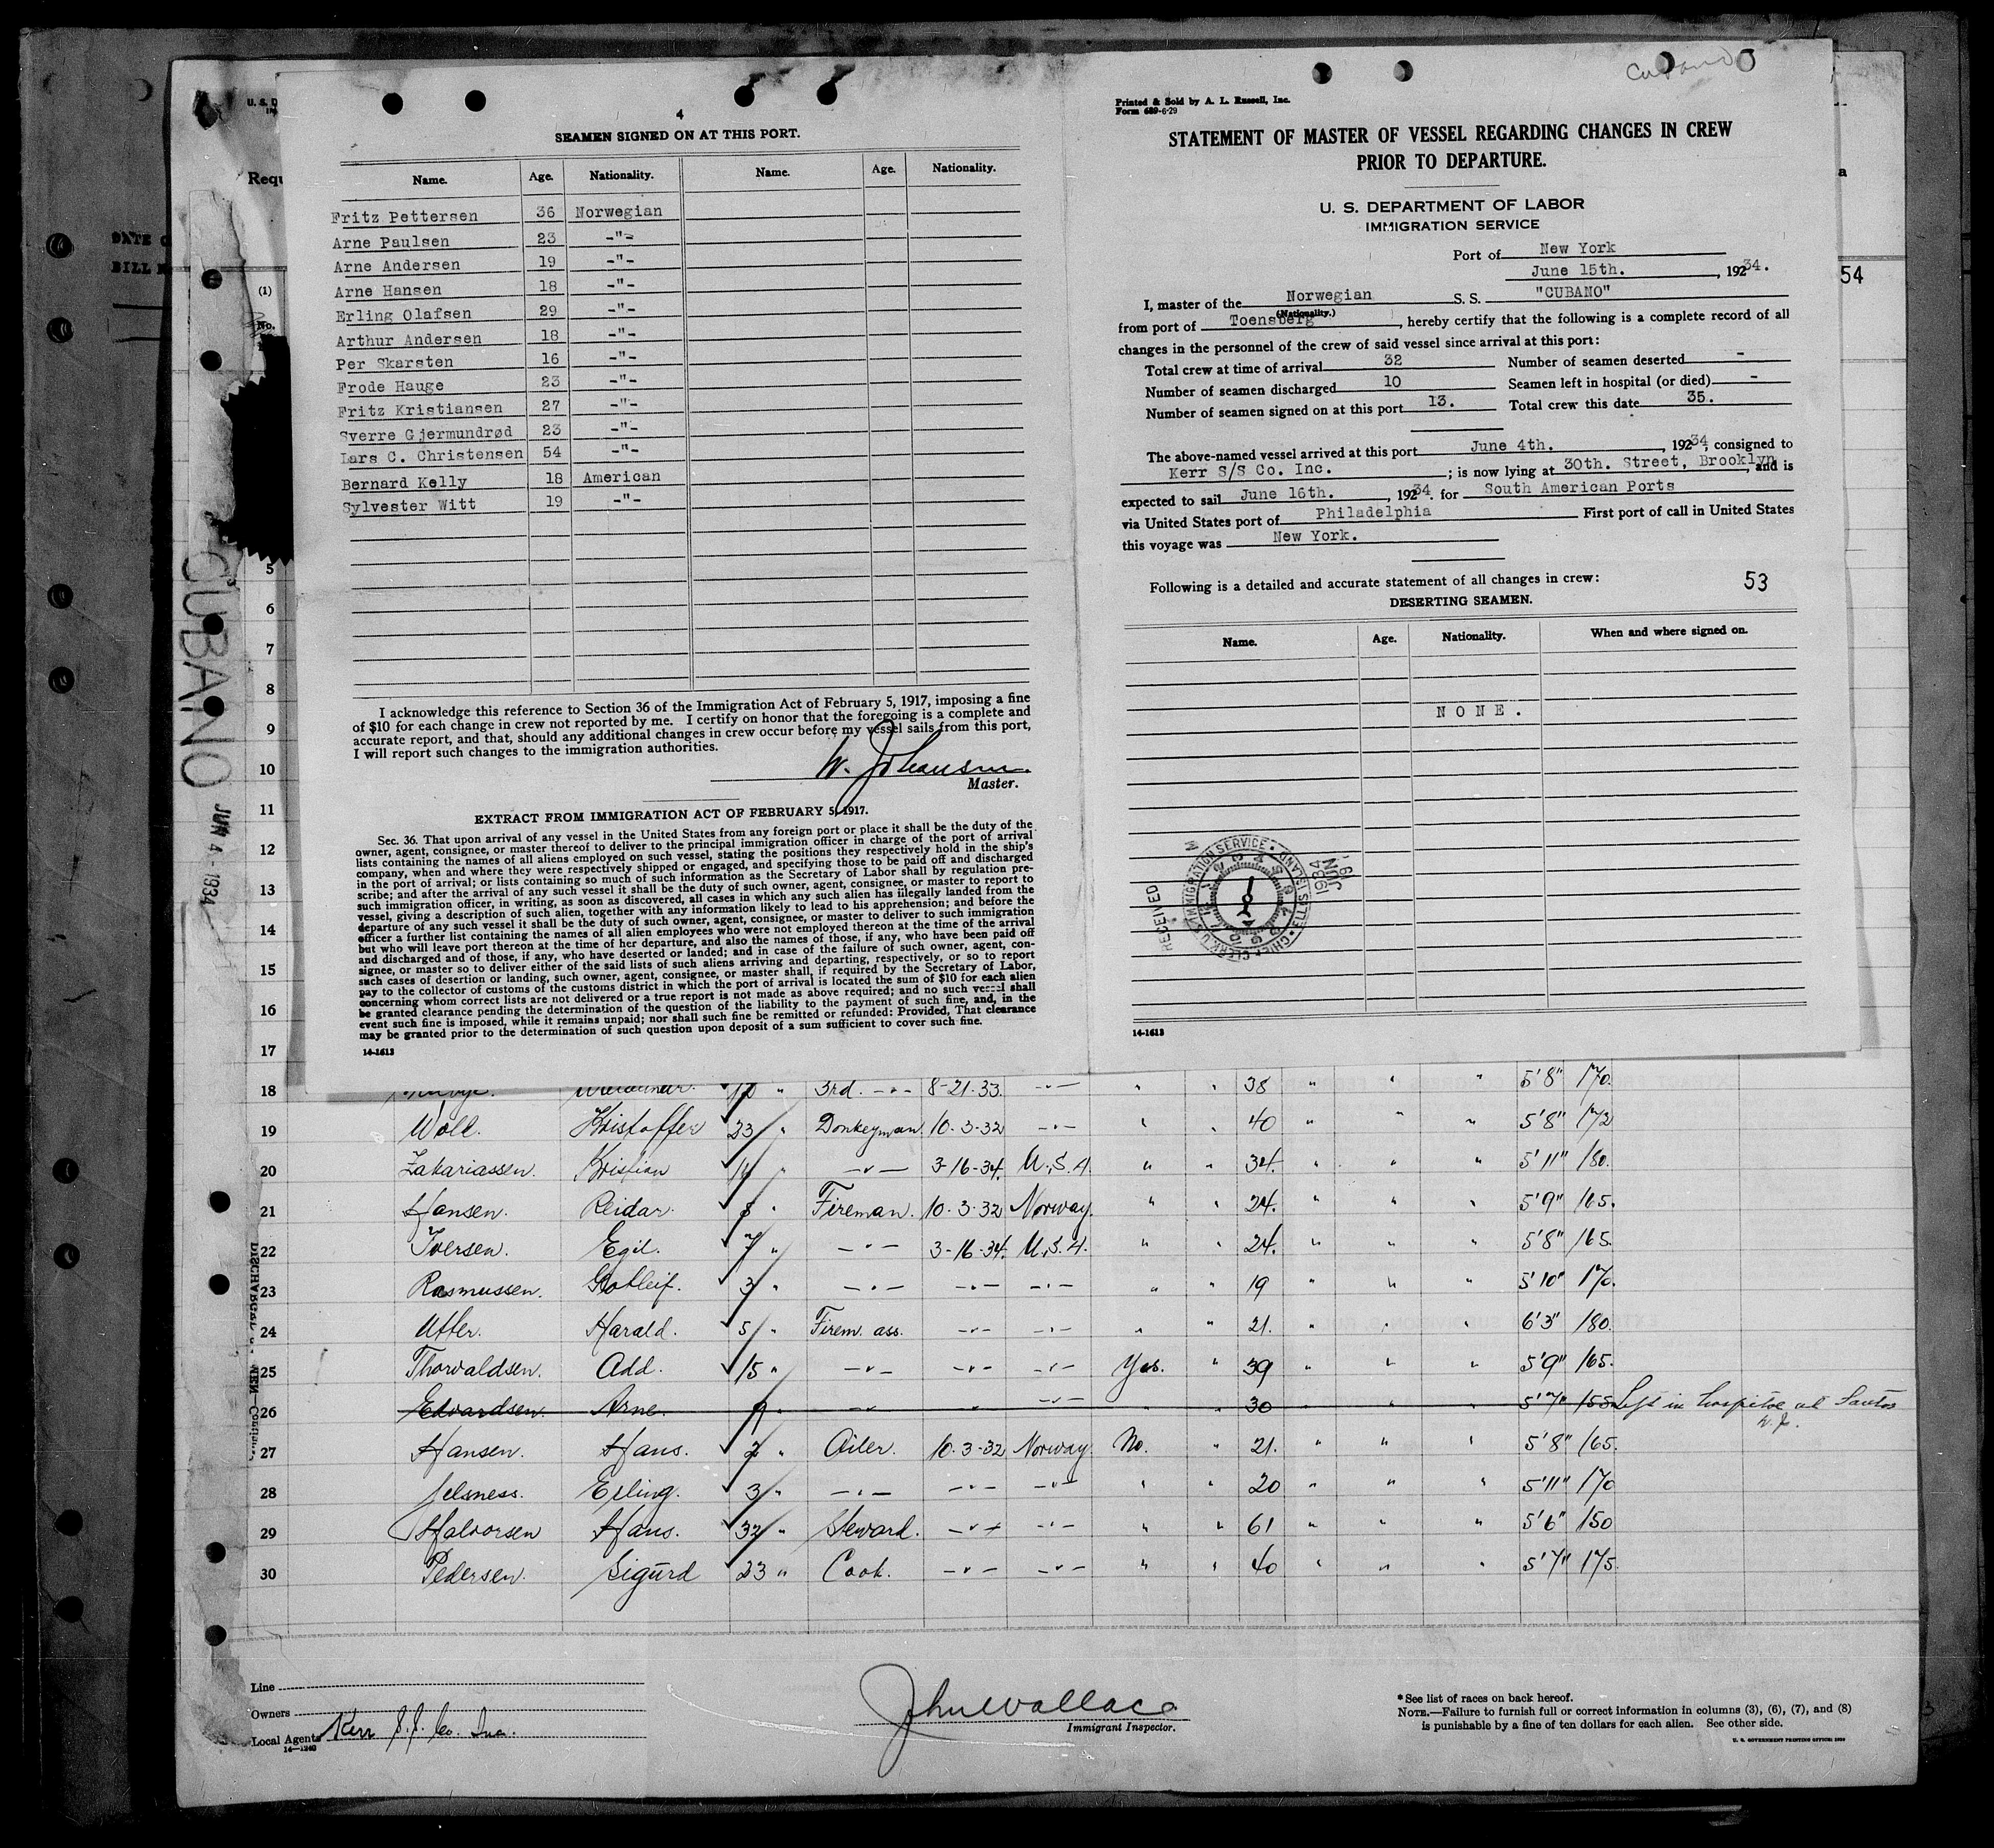 Cubano
U. S. D
Requ
(1)
No.
DATE O
BILL
54
a
CUBANO
JUN 4 - 1934
4
SEAMEN SIGNED ON AT THIS PORT.
Name. Age. Nationality. Name. Age. Nationality.
Fritz Pettersen 36 Norwegian
Arne Paulsen 23 -"-
Arne Andersen 19 -"-
Arne Hansen 18 -"-
Erling Olafsen 29 -"-
Arthur Andersen 18 -"-
Per Skarsten 16 -"-
Frode Hauge 23 -"-
Fritz Kristiansen 27 -"-
Sverre Gjermundrød 23 -"-
Lars C. Christensen 54 -"-
Bernard Kelly 18 American
Sylvester Witt 19 -"-
I acknowledge this reference to Section 36 of the Immigration Act of February 5, 1917, imposing a fine
of $10 for each change in crew not reported by me. I certify on honor that the foregoing is a complete and
accurate report, and that, should any additional changes in crew occur before my vessel sails from this port,
I will report such changes to the immigration authorities.
W. Johansen.
Master.
EXTRACT FROM IMMIGRATION ACT OF FEBRUARY 5, 1917.
Sec. 36. That upon arrival of any vessel in the United States from any foreign port or place it shall be the duty of the
owner, agent, consignee, or master thereof to deliver to the principal immigration officer in charge of the port of arrival
lists containing the names of all aliens employed on such vessel, stating the positions they respectively hold in the ship's
company, when and where they were respectively shipped or engaged, and specifying those to be paid off and discharged
in the port of arrival; or lists containing so much of such information as the Secretary of Labor shall by regulation pre-
scribe; and after the arrival of any such vessel it shall be the duty of such owner, agent, consignee, or master to report to
such immigration officer, in writing, as soon as discovered, all cases in which any such alien has illegally landed from the
vessel, giving a description of such alien, together with any information likely to lead to his apprehension; and before the
departure of any such vessel it shall be the duty of such owner, agent, consignee, or master to deliver to such immigration
officer a further list containing the names of all alien employees who were not employed thereon at the time of the arrival
but who will leave port thereon at the time of her departure, and also the names of those, if any, who have been paid off
and discharged and of those, if any, who have deserted or landed; and in case of the failure of such owner, agent, con-
signee, or master so to deliver either of the said lists of such aliens arriving and departing, respectively, or so to report
such cases of desertion or landing, such owner, agent, consignee, or master shall, if required by the Secretary of Labor,
pay to the collector of customs of the customs district in which the port of arrival is located the sum of $10 for each alien
concerning whom correct lists are not delivered or a true report is not made as above required; and no such vessel shall
be granted clearance pending the determination of the question of the liability to the payment of such fine, and, in the
event such fine is imposed, while it remains unpaid; nor shall such fine be remitted or refunded: Provided, That clearance
may be granted prior to the determination of such question upon deposit of a sum sufficient to cover such fine.
14-1613
Printed & Sold by A. L. Russell, Inc.
Form 689-6-29
STATEMENT OF MASTER OF VESSEL REGARDING CHANGES IN CREW
PRIOR TO DEPARTURE.
U. S. DEPARTMENT OF LABOR
IMMIGRATION SERVICE
Port of New York
June 15th., 19234.
I, master of the Norwegian S. S. "CUBANO"
(Nationality.)
from port of Toensberg, hereby certify that the following is a complete record of all
changes in the personnel of the crew of said vessel since arrival at this port:
Total crew at time of arrival 32 Number of seamen deserted -
Number of seamen discharged 10 Seamen left in hospital (or died) -
Number of seamen signed on at this port 13. Total crew this date 35.
The above-named vessel arrived at this port June 4th., 19234, consigned to
Kerr S/S Co. Inc.; is now lying at 30th. Street, Brooklyn, and is
expected to sail June 16th., 19234. for South American Ports
via United States port of Philadelphia First port of call in United States
this voyage was New York.
Following is a detailed and accurate statement of all changes in crew: 53
DESERTING SEAMEN.
Name. Age. Nationality. When and where signed on.
NONE.
RECEIVED
CLERK, U.S. IMMIGRATION SERVICE • ELLIS ISLAND • CHIEF
1934 JUN
14-1613
5
6
7
8
9
10
11
12
13
14
15
16
17
18 3rd. -"- 8-21-33. -"- " " 38 " " " 5'8" 170.
19 Woll. Kristoffer 23 " Donkeyman. 10-3-32 -"- " " 40 " " " 5'8" 172
20 Zakariassen. Kristian 14 " -"- 3-16-34. U.S.A. " " 34. " " " 5'11" 180.
21 Hansen. Reidar. 8 " Fireman. 10-3-32 Norway. " " 24. " " " 5'9" 165.
22 Iversen. Egil. 7 " -"- 3-16-34. U.S.A. " " 24. " " " 5'8" 165.
23 Rasmussen. Gotleif. 3 " -"- -"- -"- " " 19 " " " 5'10" 170.
24 Utter. Harald. 5 " Firem. ass. -"- -"- " " 21. " " " 6'3" 180.
25 Thorvaldsen. Add. 15 " -"- -"- -"- Yes. " 39 " " " 5'9" 165.
26 Edvardsen. Arne. 9 " -"- " -"- " " 30 " " " 5'7" 155 Left in hospital at Santos
W. J.
27 Hansen. Hans. 2 " Oiler. 10-3-32 Norway. No. " 21. " " " 5'8" 165.
28 Jelsness. Erling. 3 " -"- -"- -"- " " 20 " " " 5'11" 170
29 Halvorsen Hans. 32 " Steward. -"- -"- " " 61 " " " 5'6" 150
30 Pedersen. Sigurd 23 " Cook. -"- -"- " " 40 " " " 5'7" 175.
Line
Owners
Local Agents Kerr S.S. Co. Inc.
14—1240
John Wallace
Immigrant Inspector.
* See list of races on back hereof.
NOTE.—Failure to furnish full or correct information in columns (3), (6), (7), and (8)
is punishable by a fine of ten dollars for each alien. See other side.
U. S. GOVERNMENT PRINTING OFFICE: